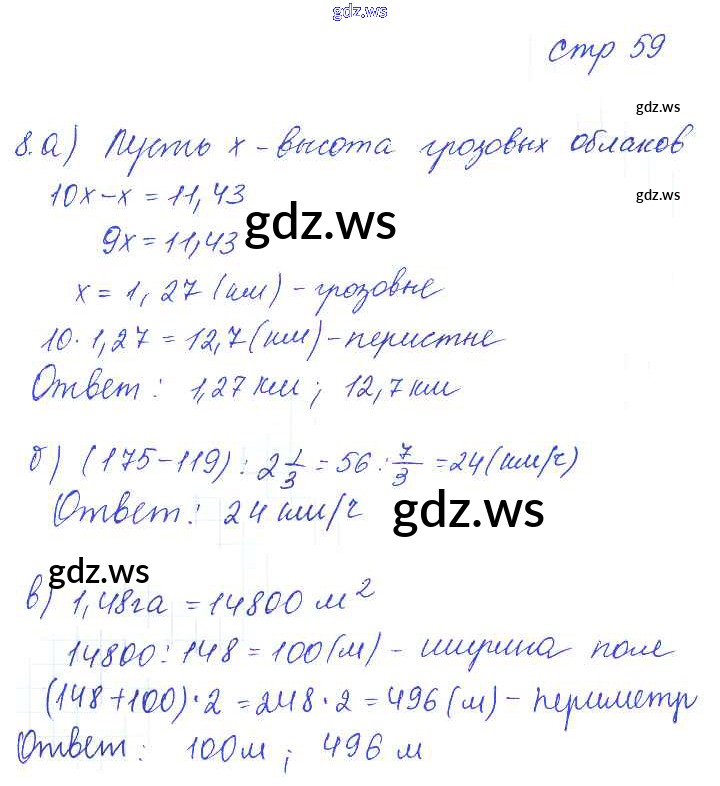 gdz.ws
стр 59
gdz.ws
8.а) Пусть x - высота грозовых облаков
10x-x = 11,43
gdz.ws
gdz.ws
9x = 11,43
x = 1,27 (км) - грозовые
10·1,27 = 12,7 (км) - перистые
Ответ: 1,27 км; 12,7 км
б) (175-119) : 2 1/3 = 56 : 7/3 = 24 (км/ч)
Ответ: 24 км/ч
gdz.ws
gdz.ws
в) 1,48га = 14800 м²
14800:148 = 100 (м) - ширина поле
(148+100)·2 = 248·2 = 496 (м) - периметр
Ответ: 100м; 496 м